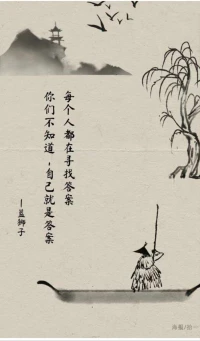 每个人都在寻找答案
你们不知道，自己就是答案
—蓝狮子